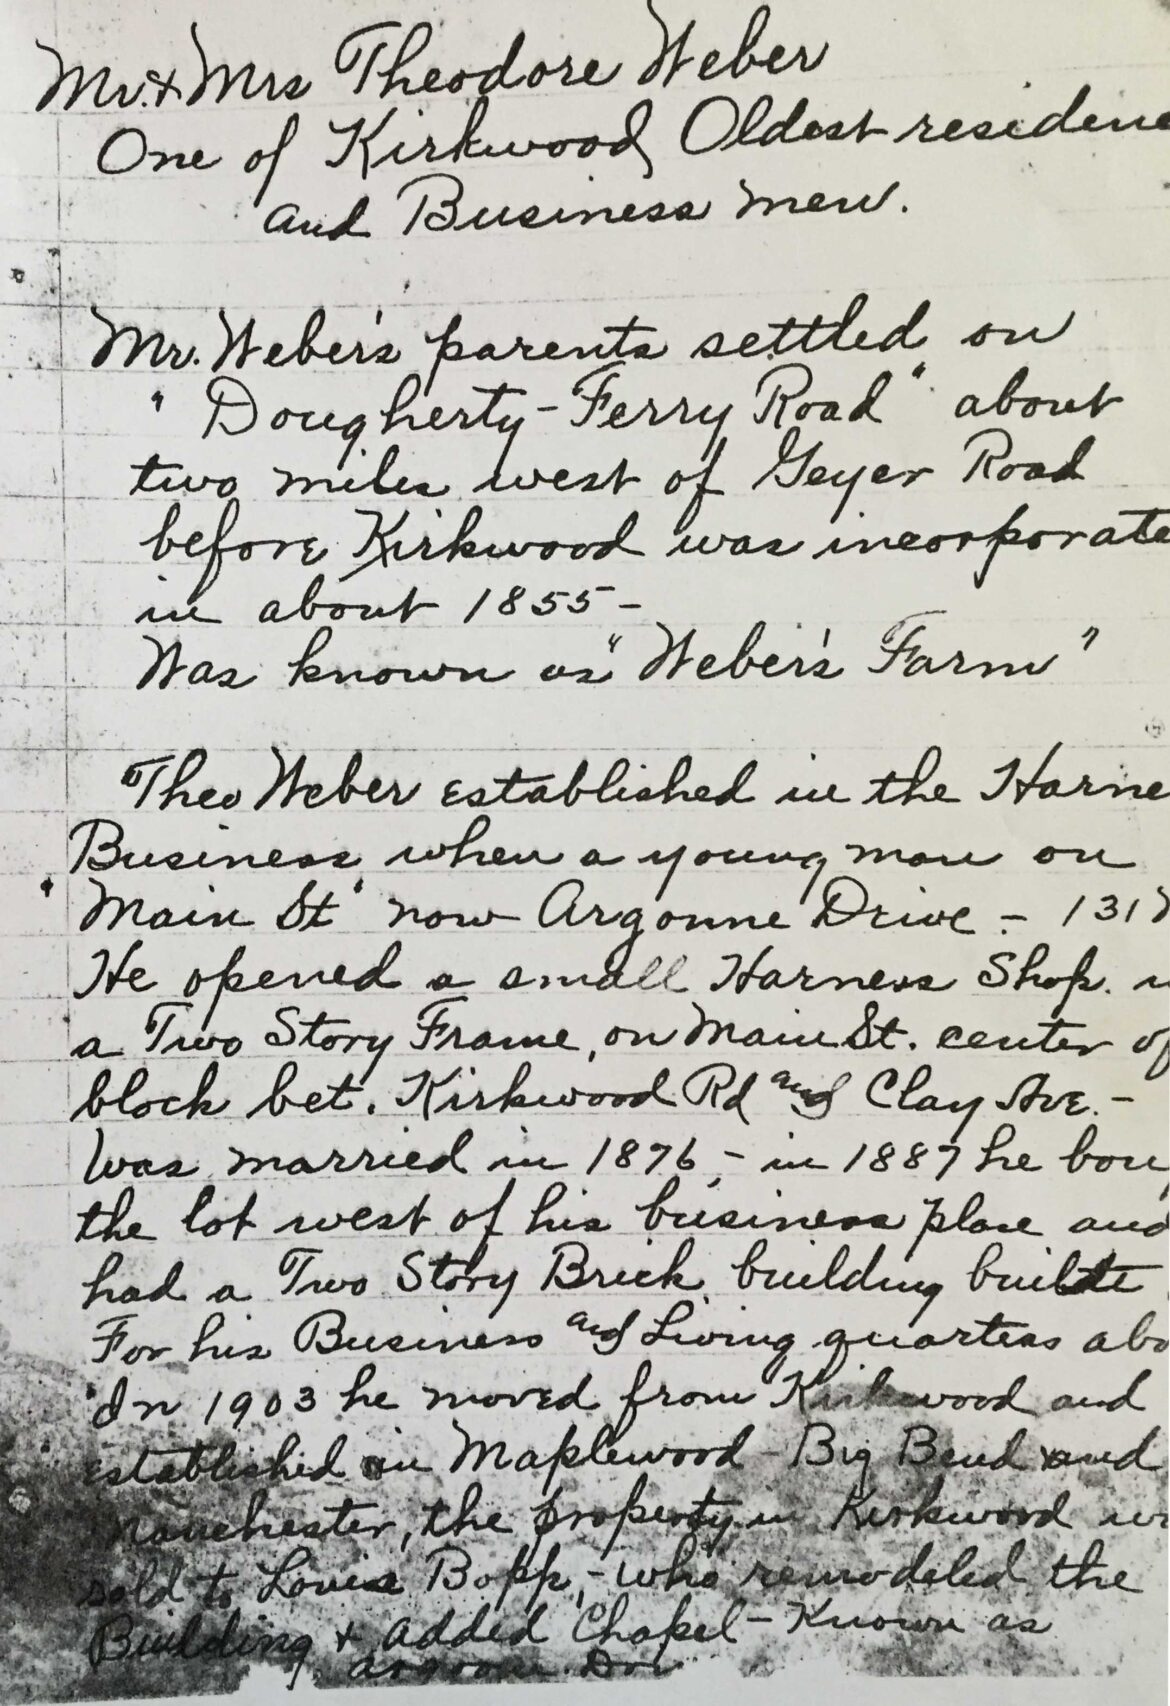 Mr. & Mrs Theodore Weber
One of Kirkwood Oldest residene
and Business men.
Mr. Weber's parents settled on
"Dougherty-Ferry Road" about
two miles west of Geyer Road
before Kirkwood was incorporate
in about 1855-
Was known as "Weber's Farm"
Theo Weber established in the Harne
Business when a young man on
"Main St" now Argonne Drive - 131
He opened a small Harness Shop.
a Two Story Frame, on Main St. center of
block bet. Kirkwood Rd and Clay Ave. -
Was married in 1876, - in 1887 he bou
the lot west of his business place and
had a Two Story Brick building builte
For his Business and Living quarters abo
In 1903 he moved from Kirkwood and
established in Maplewood - Big Bend and
Manchester, the property in Kirkwood w
sold to Louis Bopp, - who remodeled the
Building & added Chapel - Known as